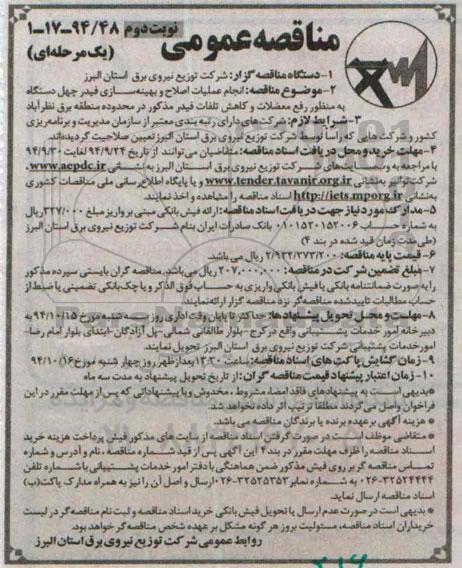 مناقصه عمومی
نوبت دوم ۹۴/۴۸-۱۷-۱
(یک مرحله‌ای)
۱-دستگاه مناقصه گزار: شرکت توزیع نیروی برق استان البرز
۲-موضوع مناقصه: انجام عملیات اصلاح و بهینه‌سازی فیدر چهل دستگاه
به منظور رفع معضلات و کاهش تلفات فیدر مذکور در محدوده منطقه برق نظرآباد
۳-شرایط لازم: شرکت‌های دارای رتبه بندی معتبر از سازمان مدیریت و برنامه‌ریزی
کشور و شرکت هایی که رأساً توسط شرکت توزیع نیروی برق استان البرز تعیین صلاحیت گردیده‌اند.
۴-مهلت خرید و محل دریافت اسناد مناقصه: متقاضیان می‌توانند از تاریخ ۹۴/۹/۲۴ لغایت ۹۴/۹/۳۰
با مراجعه به وب‌سایت‌های شرکت توزیع نیروی برق استان البرز به نشانی www.aepdc.ir
شرکت توانیر به‌نشانی www.tender.tavanir.org.ir و یا پایگاه اطلاع رسانی ملی مناقصات کشوری
به‌نشانی http://iets.mporg.ir اسناد مناقصه را مشاهده و اخذ نمایند.
۵-مدارک مورد نیاز جهت دریافت اسناد مناقصه: ارائه فیش بانکی مبنی بر واریز مبلغ ۳۲۷/۰۰۰ ریال
به شماره حساب ۰۱۰۱۵۲۰۱۵۲۰۰۶ بانک صادرات ایران بنام شرکت توزیع نیروی برق استان البرز
(طی مدت زمان قید شده در بند ۴)
۶-قیمت پایه مناقصه: ۲/۹۳۲/۳۷۳/۲۰۰ ریال می باشد.
۷-مبلغ تضمین شرکت در مناقصه: ۲۰۷.۰۰۰.۰۰۰ ریال می‌باشد. مناقصه گران بایستی سپرده مذکور
را به صورت ضمانتنامه بانکی یا فیش بانکی واریزی به حساب فوق الذکر و یا چک بانکی تضمینی یا ضبط از
حساب مطالبات تایید شده مناقصه‌گر نزد مناقصه گزار ارائه نمایند.
۸-مهلت و محل تحویل پیشنهادها: حداکثر تا پایان وقت اداری روز سه شنبه مورخ ۹۴/۱۰/۱۵ به
دبیرخانه امور خدمات پشتیبانی واقع در کرج - بلوار طالقانی شمالی-پل آزادگان-ابتدای بلوار امام رضا-
امور خدمات پشتیبانی شرکت توزیع نیروی برق استان البرز تحویل نمایند.
۹-زمان گشایش پاکت های اسناد مناقصه: ساعت ۱۳:۳۰ بعدازظهر روز چهار شنبه مورخ ۹۴/۱۰/۱۶
۱۰-زمان اعتبار پیشنهاد قیمت مناقصه گران: از تاریخ تحویل پیشنهاد به مدت سه ماه
*بدیهی است به پیشنهادهای فاقد امضا، مشروط، مخدوش و یا پیشنهاداتی که پس از مهلت مقرر در این
فراخوان واصل می گردند مطلقاً ترتیب اثر داده نخواهد شد.
* هزینه آگهی بر عهده برنده یا برندگان مناقصه می باشد.
* متقاضی موظف است در صورت گرفتن اسناد مناقصه از سایت های مذکور فیش پرداخت هزینه خرید
اسناد مناقصه را ظرف مهلت مقرر در بند ۴ این آگهی پس از قید شماره مناقصه، نام و آدرس و شماره
تماس مناقصه گر بر روی فیش مذکور ضمن هماهنگی با دفتر امور خدمات پشتیبانی با شماره تلفن
۰۲۶-۳۲۵۲۴۴۴۴ به شماره نمابر ۰۲۶-۳۲۵۲۵۳۵۲ ارسال و اصل آن را نیز به همراه مدارک پاکت(ب)
اسناد مناقصه ارسال نماید.
* بدیهی است در صورت عدم ارسال یا تحویل فیش بانکی خرید اسناد مناقصه و ثبت نام مناقصه گر در لیست
خریداران اسناد مناقصه، مسئولیت بروز هر گونه مشکل بر عهده شخص مناقصه گر خواهد بود.
روابط عمومی شرکت توزیع نیروی برق استان البرز